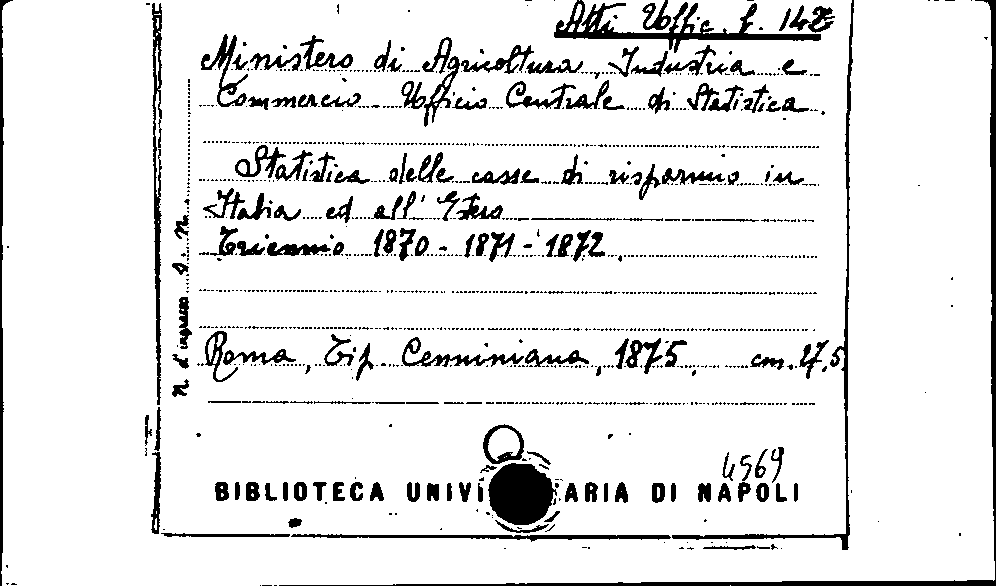 Atti Uffic. f. 142
Ministero di Agricoltura, Industria e
Commercio. Ufficio Centrale di Statistica.
Statistica delle casse di risparmio in
Italia ed all' Estero
Triennio 1870 - 1871 - 1872.
Roma, Tip. Cenniniana, 1875. cm. 27,5
N. d'ingresso S. N.
4569
BIBLIOTECA UNIVE ARIA DI NAPOLI